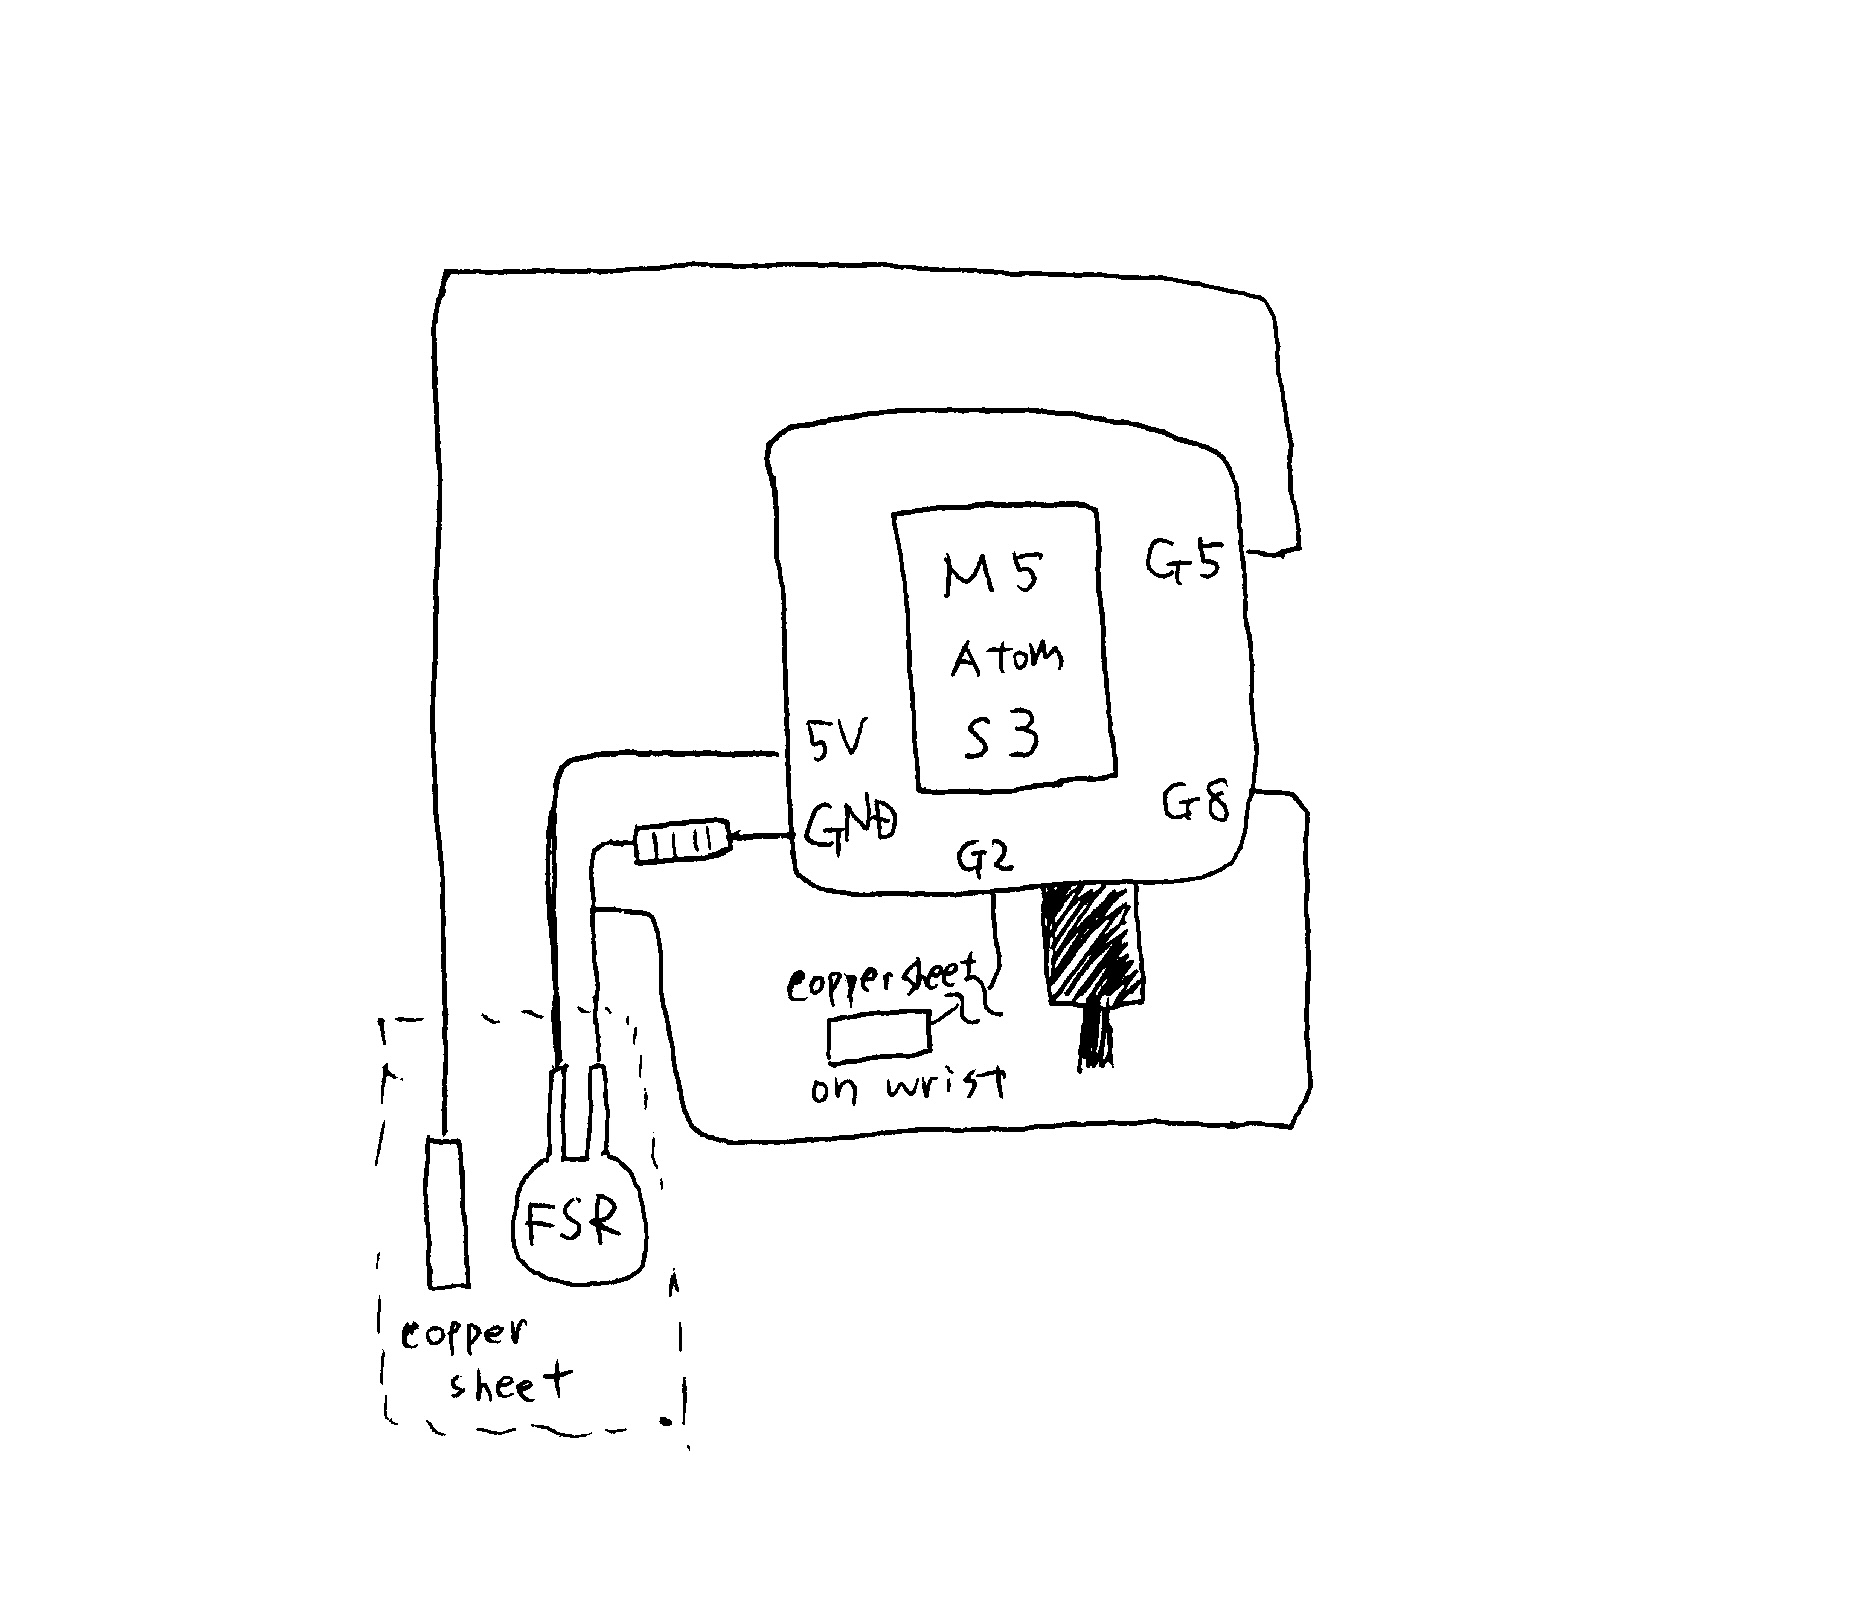 M5
Atom
S3
G5
5V
GND
G8
G2
copper sheet
on wrist
FSR
copper
sheet